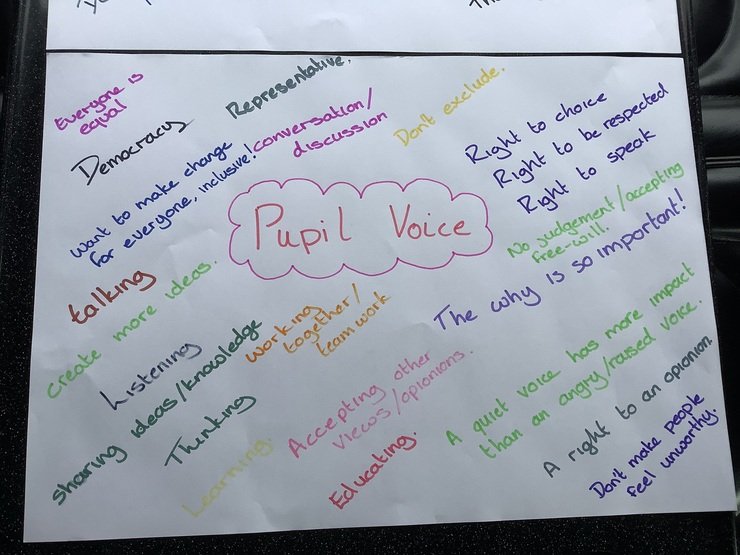 Everyone is
equal
Democracy
Representative.
Want to make change
for everyone, inclusive!
conversation/
discussion
Don't exclude.
Right to choice
Right to be respected
Right to speak
Pupil Voice
No judgement/accepting
free-will.
The why is so important!
talking
create more ideas.
Listening
sharing ideas/knowledge
working
together/
team work
Thinking
Learning.
Accepting other
views/opionions.
Educating.
A quiet voice has more impact
than an angry/raised voice.
A right to an opionion.
Don't make people
feel unworthy.